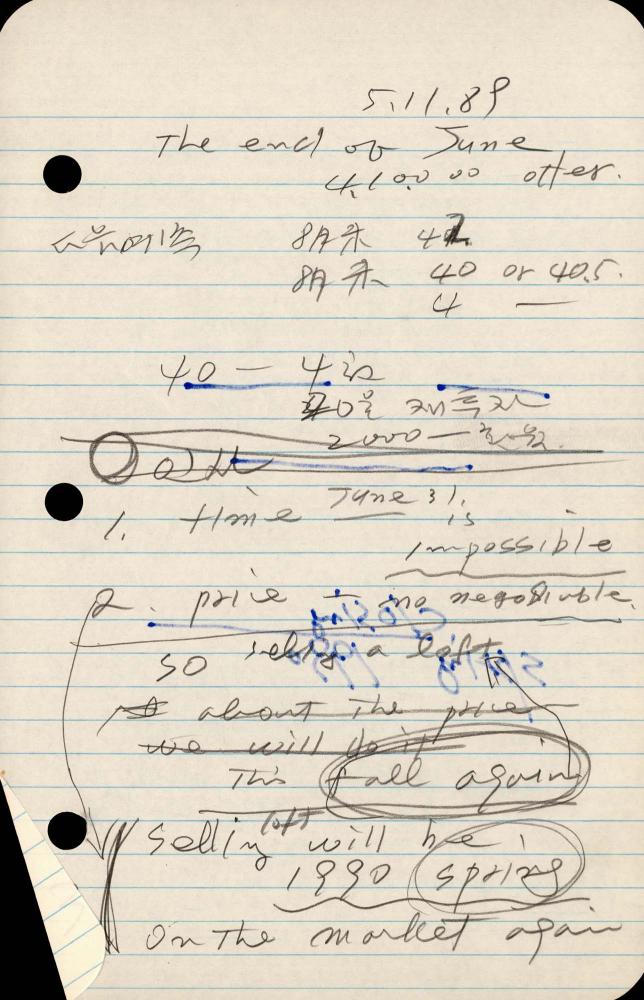 5.11.89
The end of June
4,100.00 offer.
8月末 42
8月末 40 or 40.5.
4 —
40 — 4
2000 —
1. time June 31.
is
impossible
2. price — no negotiable.
so selling a loft
about the price
we will do it
This fall again
loft
Selling will be
1990 spring
on the market again